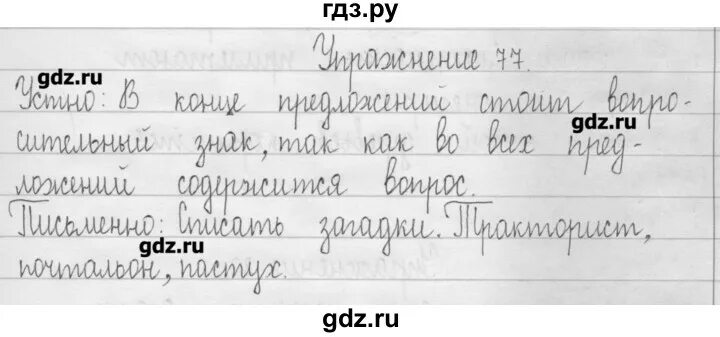 гдз.ру
Упражнение 77.
gdz.ru
Устно: В конце предложений стоит вопро-
gdz.ru
сительный знак, так как во всех пред-
ложений содержится вопрос.
Письменно: Списать загадки. Тракторист,
gdz.ru
почтальон, пастух.
gdz.ru